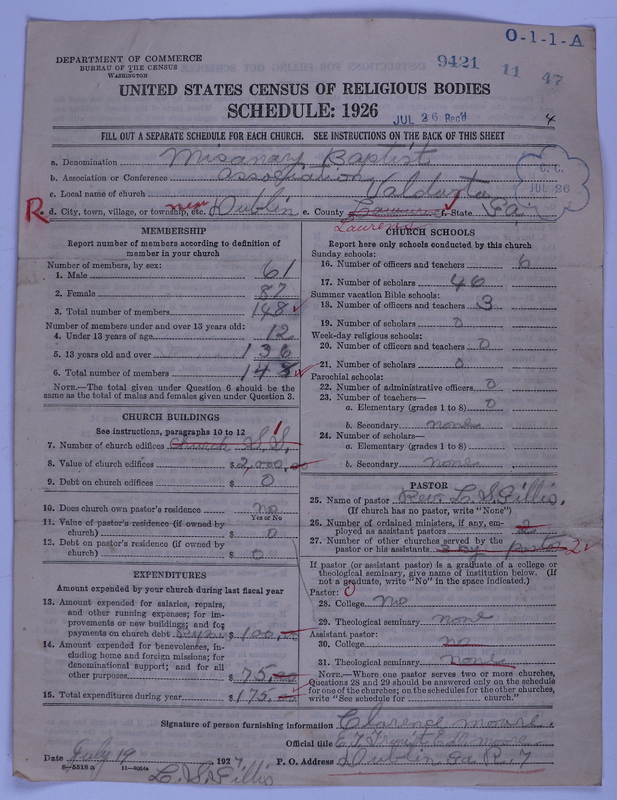 O-1-1-A
DEPARTMENT OF COMMERCE
BUREAU OF THE CENSUS
WASHINGTON
9421 11 47
UNITED STATES CENSUS OF RELIGIOUS BODIES
SCHEDULE: 1926
JUL 26 Rec'd
4
FILL OUT A SEPARATE SCHEDULE FOR EACH CHURCH. SEE INSTRUCTIONS ON THE BACK OF THIS SHEET
a. Denomination Misanary Baptist
b. Association or Conference association
c. Local name of church Valdosta
JUL 26
R. d. City, town, village, or township, etc. near Dublin e. County Laurens f. State Ga.
MEMBERSHIP
Report number of members according to definition of member in your church
Number of members, by sex:
1. Male 61
2. Female 87
3. Total number of members 148
Number of members under and over 13 years old:
4. Under 13 years of age 12
5. 13 years old and over 136
6. Total number of members 148
NOTE.—The total given under Question 6 should be the same as the total of males and females given under Question 3.
CHURCH BUILDINGS
See instructions, paragraphs 10 to 12
7. Number of church edifices Church S.S. 1
8. Value of church edifices $ 2,000,00
9. Debt on church edifices $ 0
10. Does church own pastor's residence no
Yes or No
11. Value of pastor's residence (if owned by church) $ 0
12. Debt on pastor's residence (if owned by church) $ 0
EXPENDITURES
Amount expended by your church during last fiscal year
13. Amount expended for salaries, repairs, and other running expenses; for improvements or new buildings; and for payments on church debt $ 100.00
14. Amount expended for benevolences, including home and foreign missions; for denominational support; and for all other purposes $ 75.00
15. Total expenditures during year $ 175.00
CHURCH SCHOOLS
Report here only schools conducted by this church
Sunday schools:
16. Number of officers and teachers 6
17. Number of scholars 46
Summer vacation Bible schools:
18. Number of officers and teachers 3
19. Number of scholars 0
Week-day religious schools:
20. Number of officers and teachers 0
21. Number of scholars 0
Parochial schools:
22. Number of administrative officers 0
23. Number of teachers—
a. Elementary (grades 1 to 8) 0
b. Secondary none
24. Number of scholars—
a. Elementary (grades 1 to 8)
b. Secondary none
PASTOR
25. Name of pastor Rev. L. S. Gillis.
(If church has no pastor, write "None")
26. Number of ordained ministers, if any, employed as assistant pastors 2
27. Number of other churches served by the pastor or his assistants 3 by pastor 2
If pastor (or assistant pastor) is a graduate of a college or theological seminary, give name of institution below. (If not a graduate, write "No" in the space indicated.)
Pastor:
28. College No
29. Theological seminary none
Assistant pastor:
30. College no
31. Theological seminary none
NOTE.—Where one pastor serves two or more churches, Questions 28 and 29 should be answered only on the schedule for one of the churches; on the schedules for the other churches, write "See schedule for church."
Signature of person furnishing information Clarence Moore.
Official title
Date July 19, 1927 P. O. Address Dublin Ga R 7
8-5518a 11-9054a
L. S. Gillis